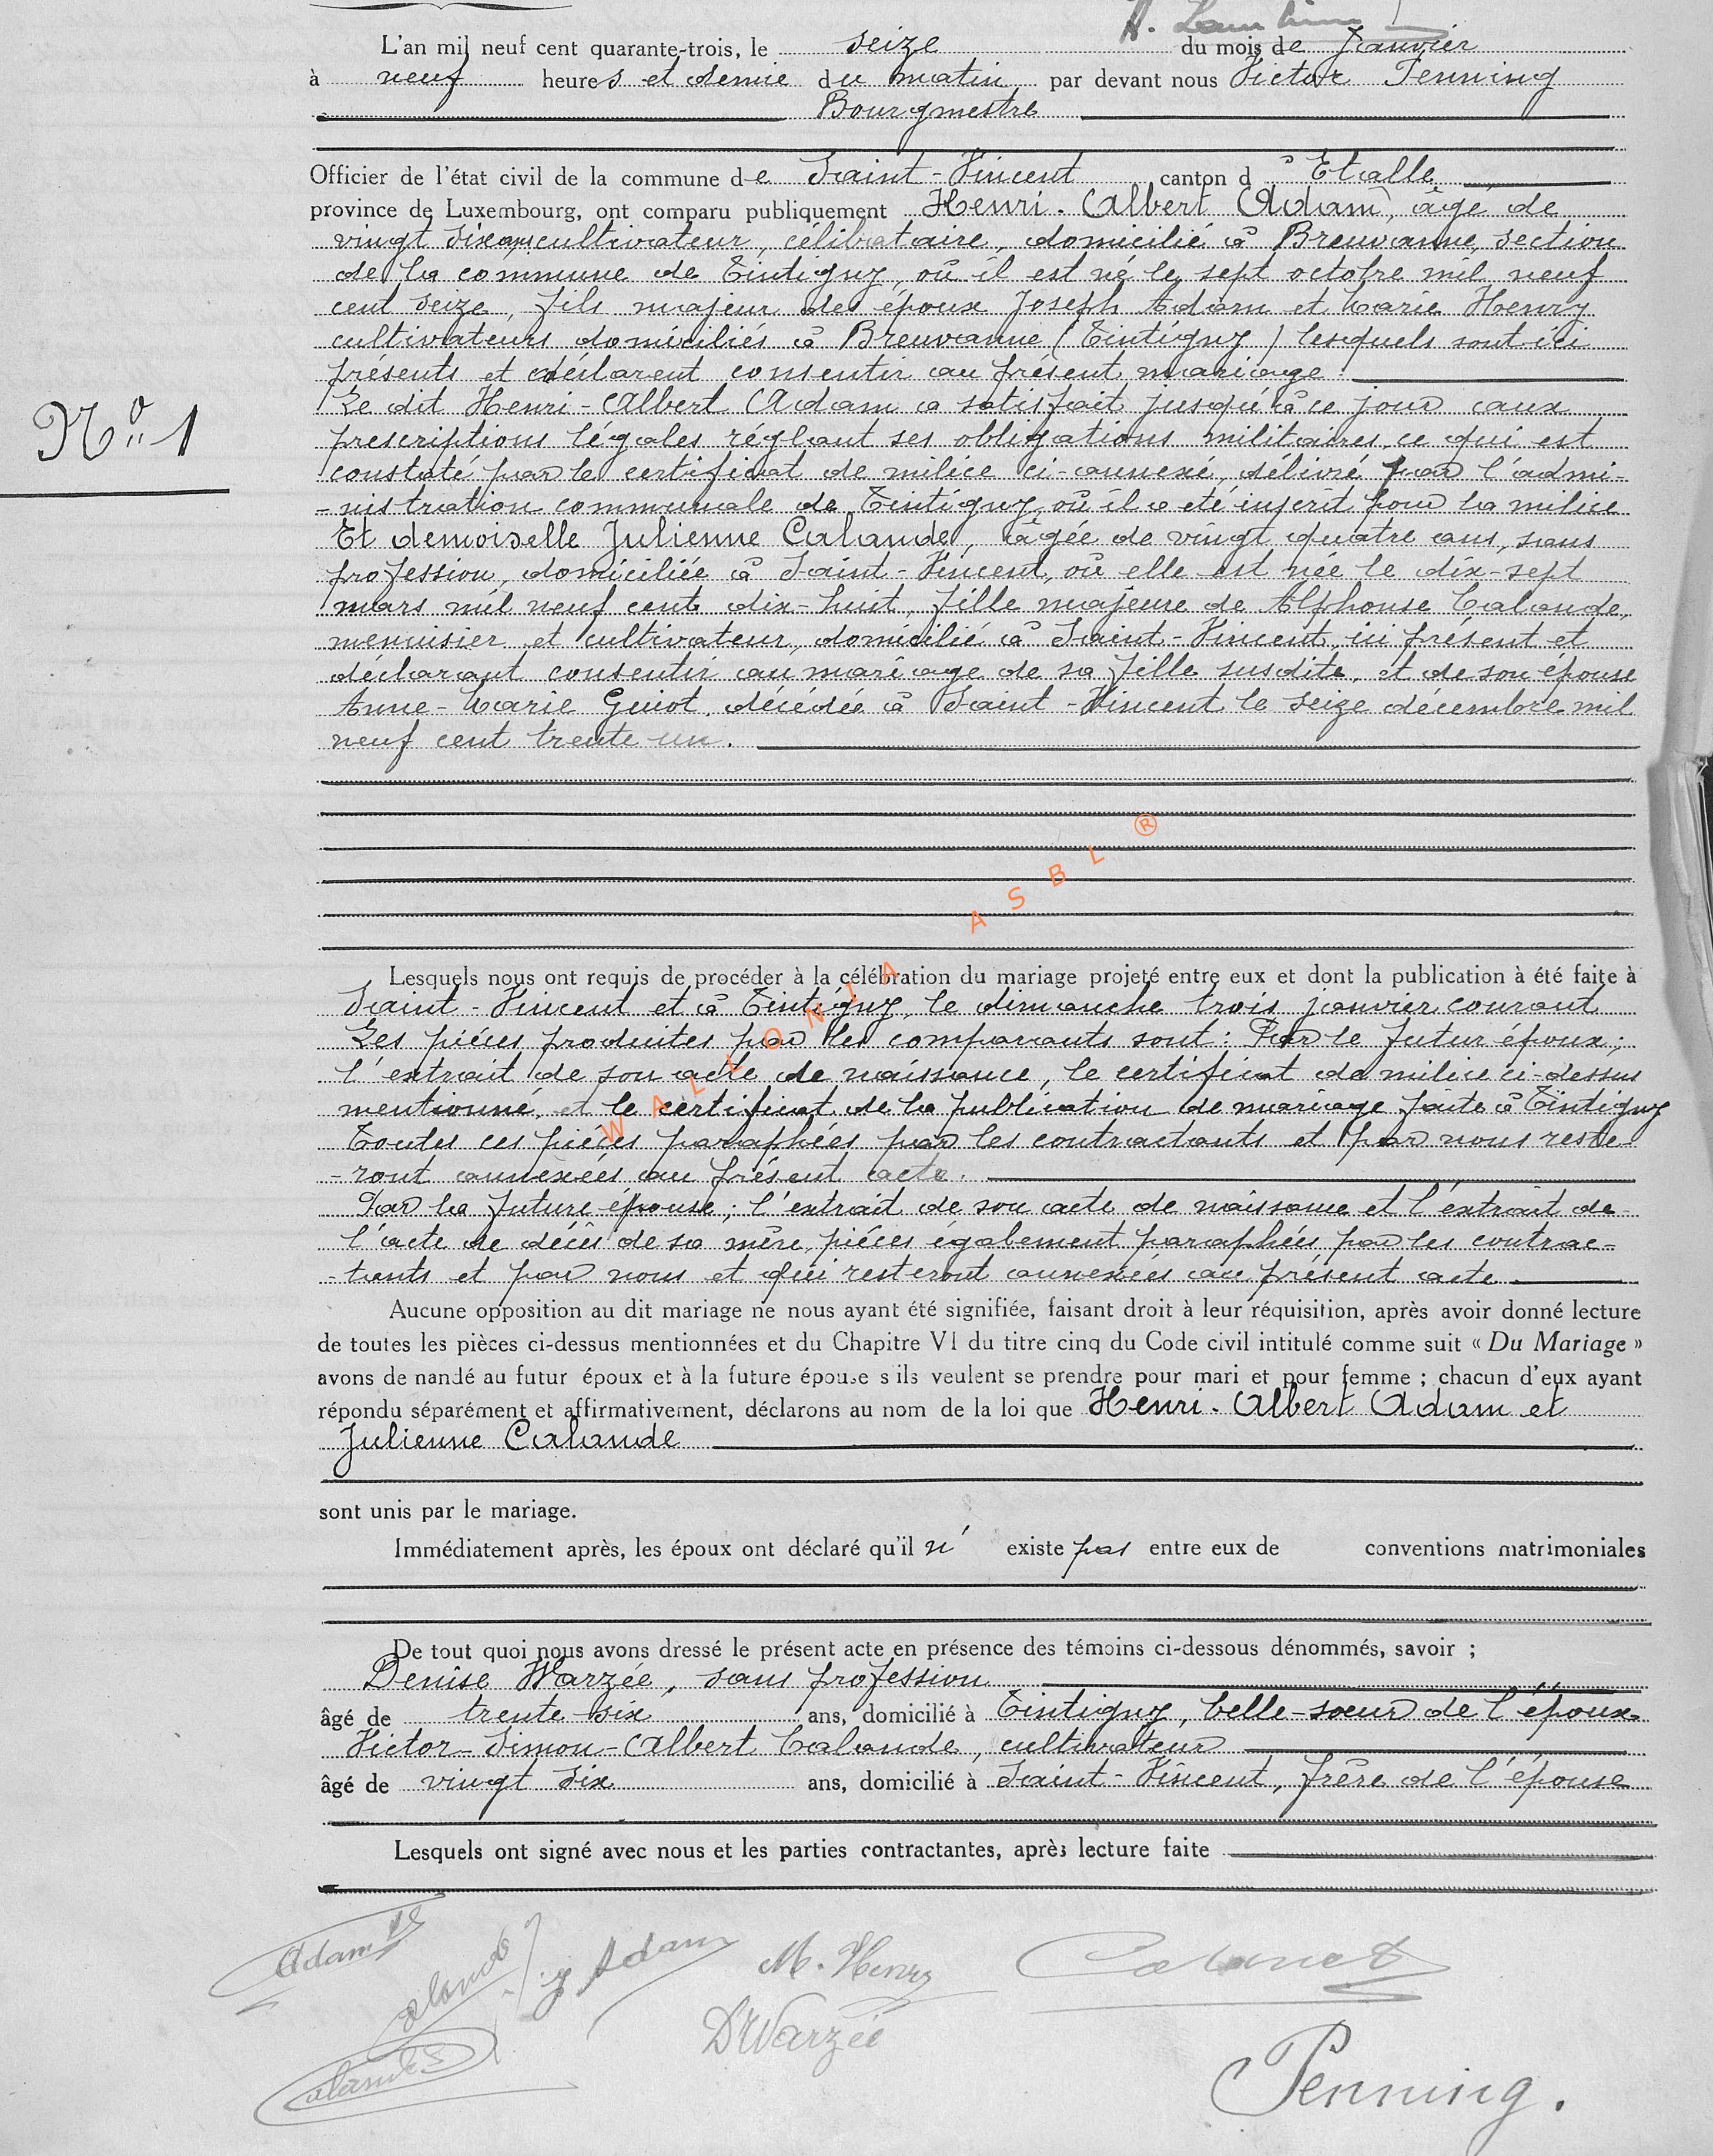 L'an mil neuf cent quarante-trois, le seize du mois de Janvier
à neuf heures et demie du matin par devant nous Victor Penning
Bourgmestre
Officier de l'état civil de la commune de Saint-Vincent canton d'Etalle
province de Luxembourg, ont comparu publiquement Henri-Albert Adam, âgé de
vingt six ans cultivateur, célibataire, domicilié à Breuvanne, section
de la commune de Tintigny, où il est né le sept octobre mil neuf
cent seize, fils majeur des époux Joseph Adam et Marie Henry
cultivateurs domiciliés à Breuvanne (Tintigny) lesquels sont ici
présents et déclarent consentir au présent mariage.
Le dit Henri-Albert Adam a satisfait jusqu'à ce jour aux
prescriptions légales réglant ses obligations militaires, ce qui est
constaté par le certificat de milice ci-annexé, délivré par l'admi-
-nistration communale de Tintigny, où il a été inscrit pour la milice
N° 1
Et demoiselle Julienne Calande, âgée de vingt quatre ans, sans
profession, domiciliée à Saint-Vincent, où elle est née le dix-sept
mars mil neuf cent dix-huit, fille majeure de Alphonse Calande,
menuisier et cultivateur, domicilié à Saint-Vincent, ici présent et
déclarant consentir au mariage de sa fille susdite, et de son épouse
Anne-Marie Guiot, décédée à Saint-Vincent le seize décembre mil
neuf cent trente un.
WALLONIA ASBL ®
Lesquels nous ont requis de procéder à la célébration du mariage projeté entre eux et dont la publication à été faite à
Saint-Vincent et à Tintigny, le dimanche trois janvier courant
Les pièces produites par les comparants sont: Par le futur époux;
l'extrait de son acte de naissance, le certificat de milice ci-dessus
mentionné, et le certificat de la publication de mariage faite à Tintigny
Toutes ces pièces paraphées par les contractants et par nous reste-
-ront annexées au présent acte.
Par la future épouse; l'extrait de son acte de naissance et l'extrait de
l'acte de décès de sa mère, pièces également paraphées par les contrac-
-tants et par nous et qui resteront annexées au présent acte
Aucune opposition au dit mariage ne nous ayant été signifiée, faisant droit à leur réquisition, après avoir donné lecture
de toutes les pièces ci-dessus mentionnées et du Chapitre VI du titre cinq du Code civil intitulé comme suit « Du Mariage »
avons de nandé au futur époux et à la future épouse s ils veulent se prendre pour mari et pour femme ; chacun d'eux ayant
répondu séparément et affirmativement, déclarons au nom de la loi que Henri-Albert Adam et
Julienne Calande
sont unis par le mariage.
Immédiatement après, les époux ont déclaré qu'il n' existe pas entre eux de conventions matrimoniales
De tout quoi nous avons dressé le présent acte en présence des témoins ci-dessous dénommés, savoir ;
Denise Warzée, sans profession
âgé de trente six ans, domicilié à Tintigny, belle-soeur de l'époux
Victor-Simon-Albert Calande, cultivateur
âgé de vingt six ans, domicilié à Saint-Vincent, frère de l'épouse
Lesquels ont signé avec nous et les parties contractantes, après lecture faite
Adam
J Adam M. Henry Calande
Calande
D Warzée
Penning.